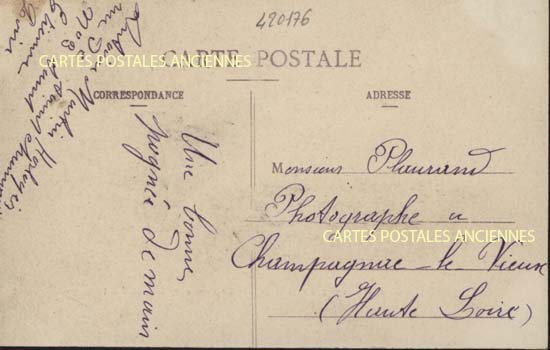 420176
CARTE POSTALE
CARTES POSTALES ANCIENNES
CORRESPONDANCE
ADRESSE
Une bonne
poignée de main
Monsieur Plaurand
Photographe a
CARTES POSTALES ANCIENNES
Champagnac-le-Vieux
(Haute Loire)
Martin
Loire